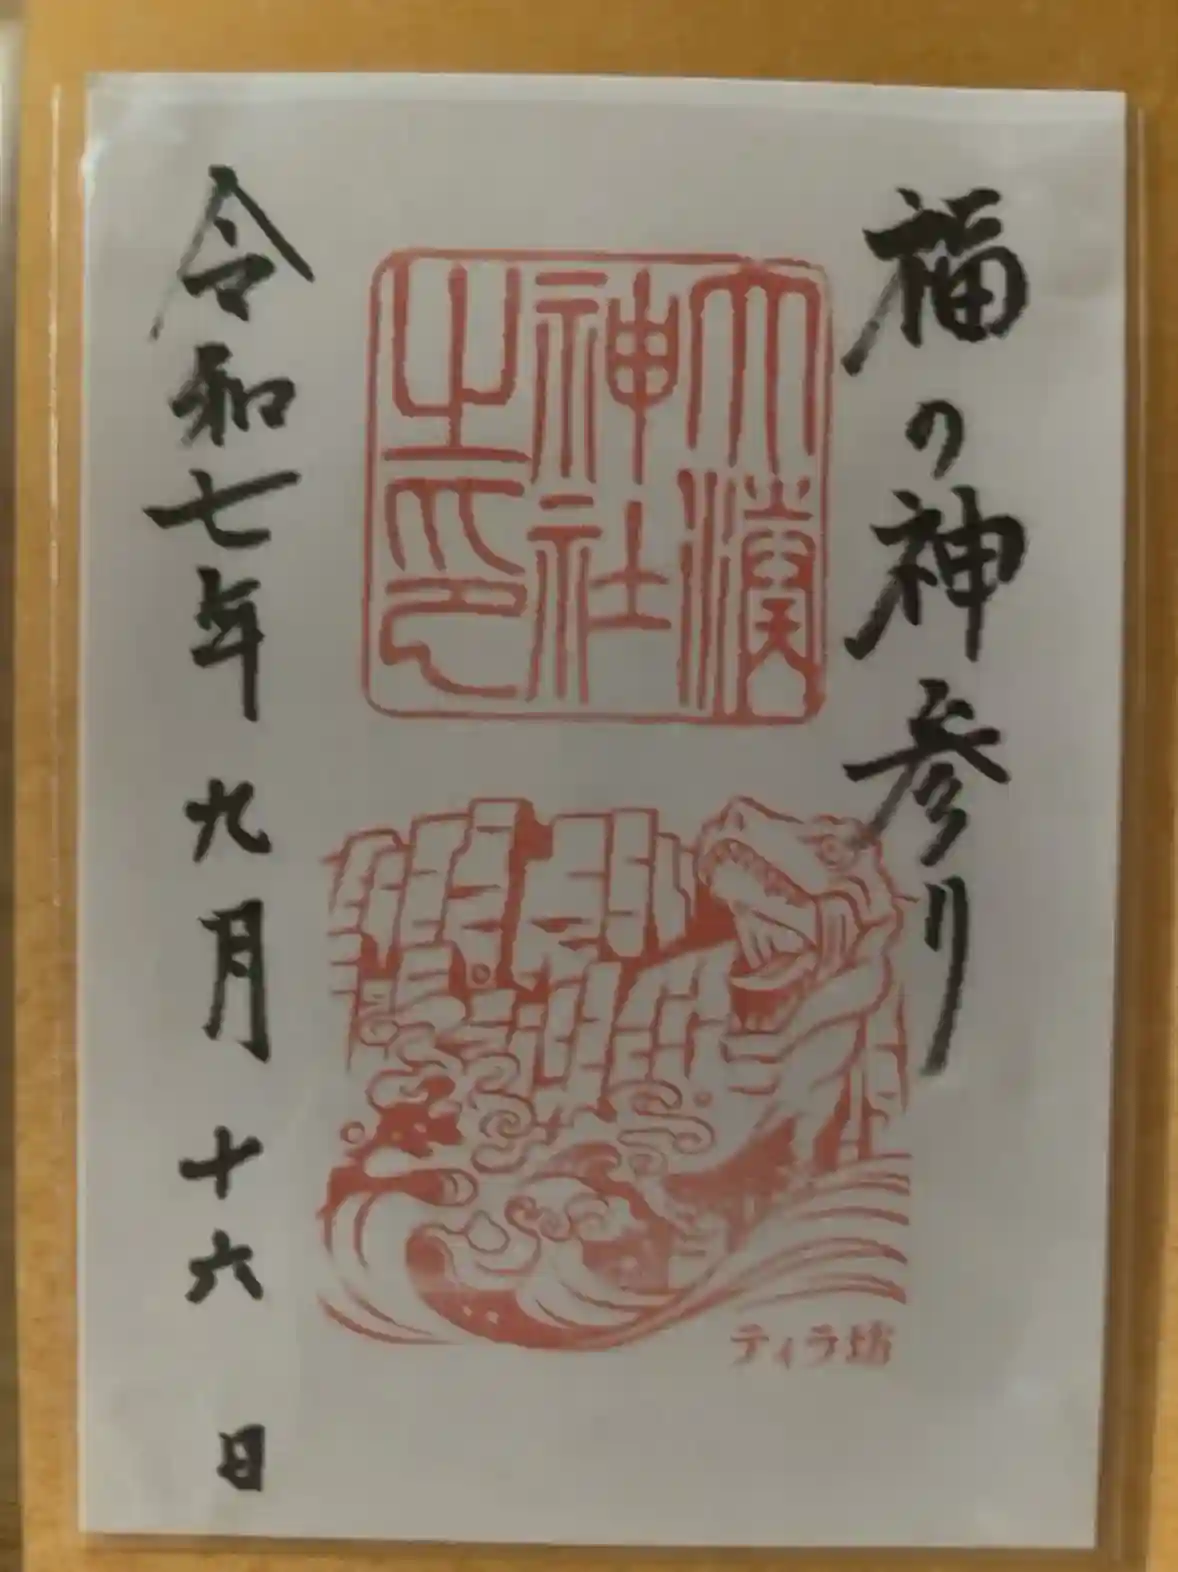 福の神参り
大湊神社之印
ティラ坊
令和七年九月十六日